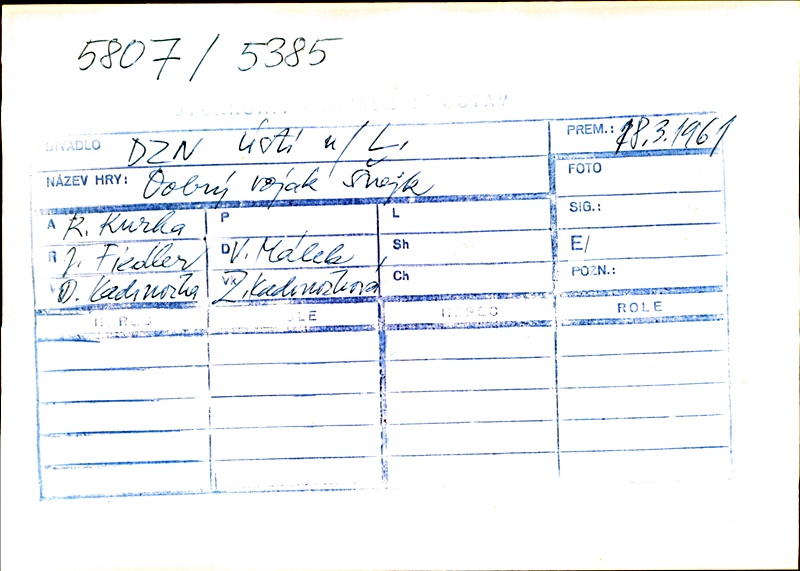 5807 / 5385
DIVADLO DZN Ústí n/L. PREM.: 18.3.1961
NÁZEV HRY: Dobrý voják Švejk FOTO
A R. Kurka P L SIG.:
R J. Fiedler D V. Málek Sh E/
V O. Kadlnožka VK Z. Kadrnožková Ch POZN.:
HEREC ROLE HEREC ROLE